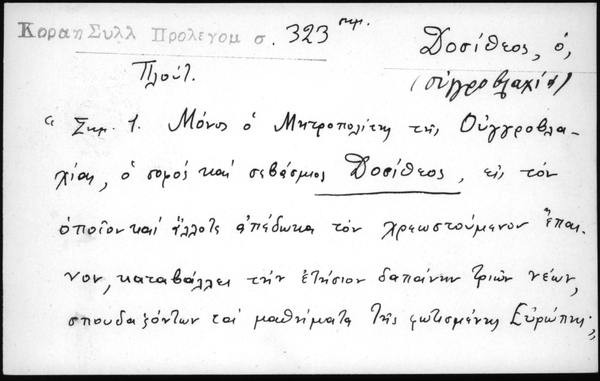 Κοραη Συλλ Προλεγομ σ. 323 σημ.
Δοσίθεος, ὁ,
Πλούτ.
(οὑγγροβλαχίας)
"Σημ. 1. Μόνος ὁ Μητροπολίτης τῆς Οὑγγροβλα-
χίας, ὁ σοφός καί σεβάσμιος Δοσίθεος, εἰς τόν
ὁποῖον καί ἄλλοτε ἀπέδωκα τόν χρεωστούμενον ἔπαι-
νον, καταβάλλει τήν ἐτήσιον δαπάνην τριῶν νέων,
σπουδαζόντων τά μαθήματα τῆς φωτισμένης Εὐρώπης;